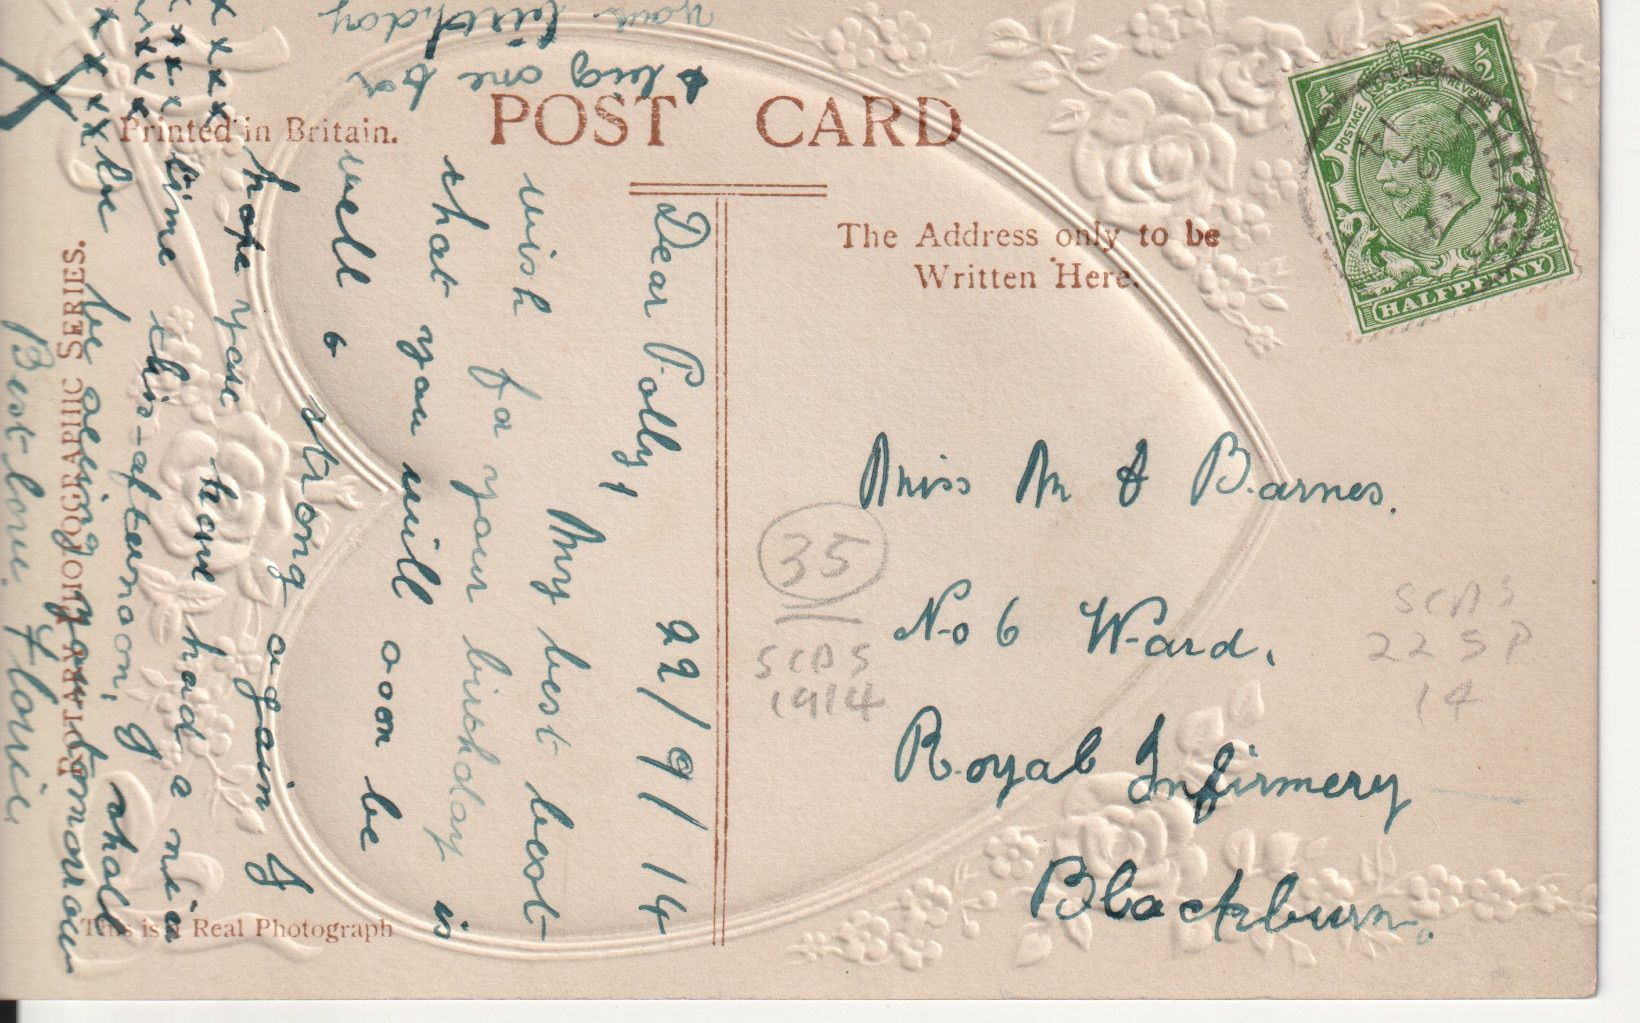 POST CARD
Printed in Britain.
The Address only to be
Written Here.
ROTARY PHOTOGRAPHIC SERIES.
This is a Real Photograph
POSTAGE REVENUE
½ ½
HALFPENNY
Miss M A Barnes.
No 6 Ward.
Royal Infirmery
Blackburn.
35
SCDS
1914
SCDS
22 SP
14
22/9/14
Dear Polly,
My best best
wish for your birthday is
that you will soon be
well & strong again I
hope you have had a nice
time this-afternoon, I shall
be seeing you tomorrow
Best love. Florie
x x x
x x x x
x x x x
x x x x
X
& big one for
your birthday